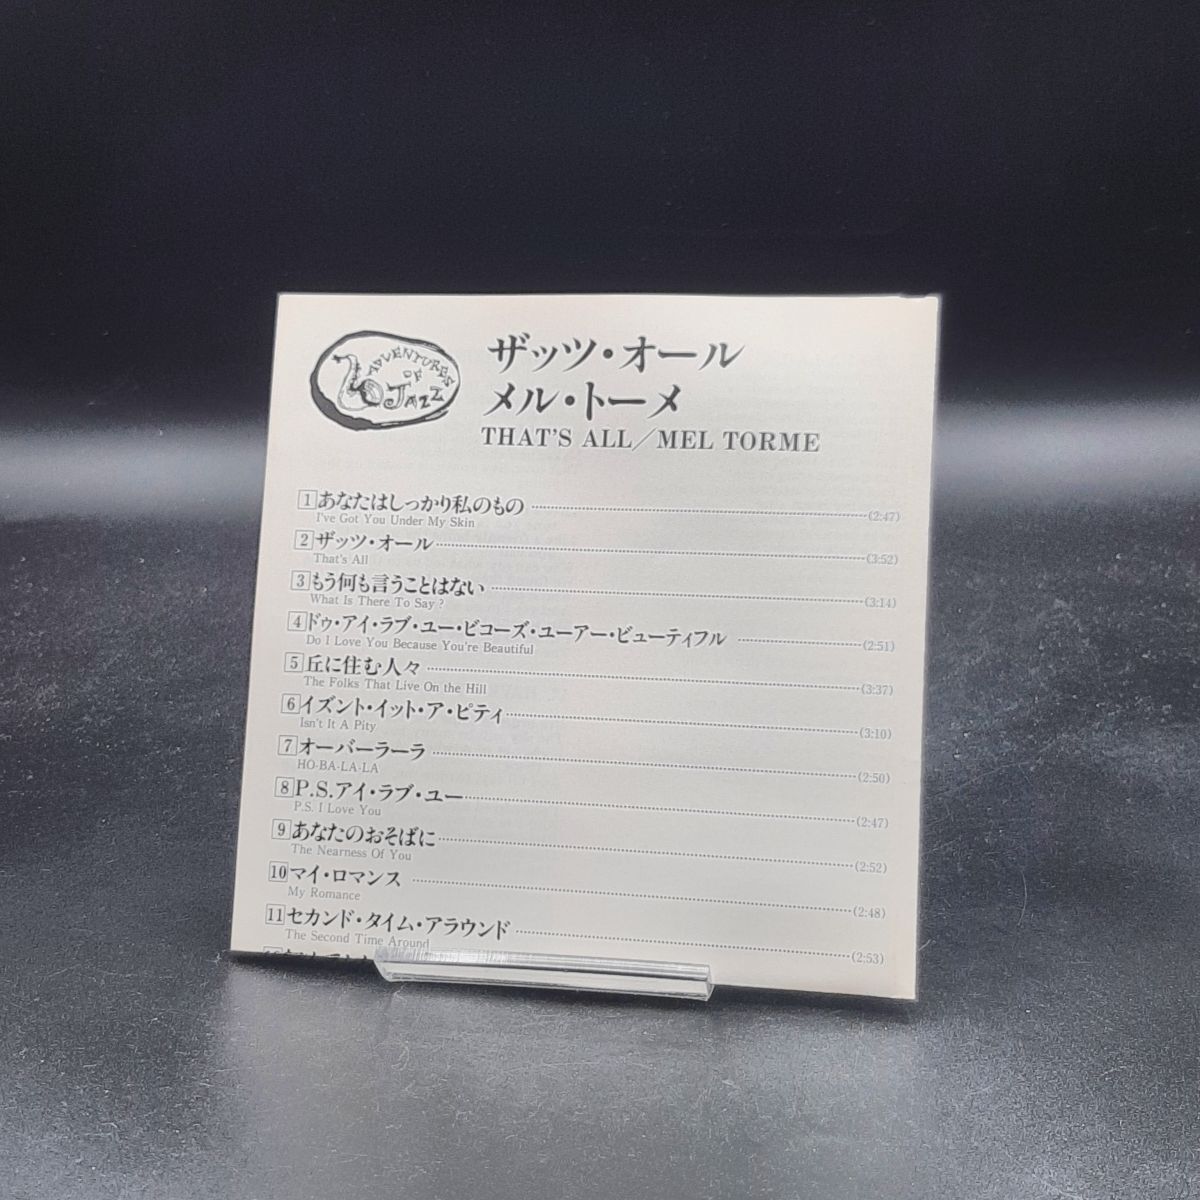 ADVENTURES
OF
JAZZ
ザッツ・オール
メル・トーメ
THAT'S ALL／MEL TORME
1 あなたはしっかり私のもの (2:47)
I've Got You Under My Skin
2 ザッツ・オール (3:52)
That's All
3 もう何も言うことはない (3:14)
What Is There To Say ?
4 ドゥ・アイ・ラブ・ユー・ビコーズ・ユーアー・ビューティフル (2:51)
Do I Love You Because You're Beautiful
5 丘に住む人々 (3:37)
The Folks That Live On the Hill
6 イズント・イット・ア・ピティ (3:10)
Isn't It A Pity
7 オーバーラーラ (2:50)
HO-BA-LA-LA
8 P.S.アイ・ラブ・ユー (2:47)
P.S. I Love You
9 あなたのおそばに (2:52)
The Nearness Of You
10 マイ・ロマンス (2:48)
My Romance
11 セカンド・タイム・アラウンド (2:53)
The Second Time Around